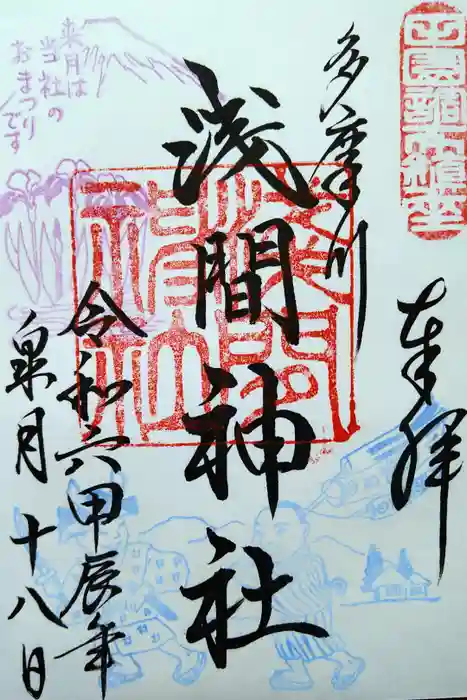 田園調布鎮座
奉拝
多摩川
浅間神社
淺間神社
令和六甲辰年
皐月十八日
来月は
当社の
おまつり
です